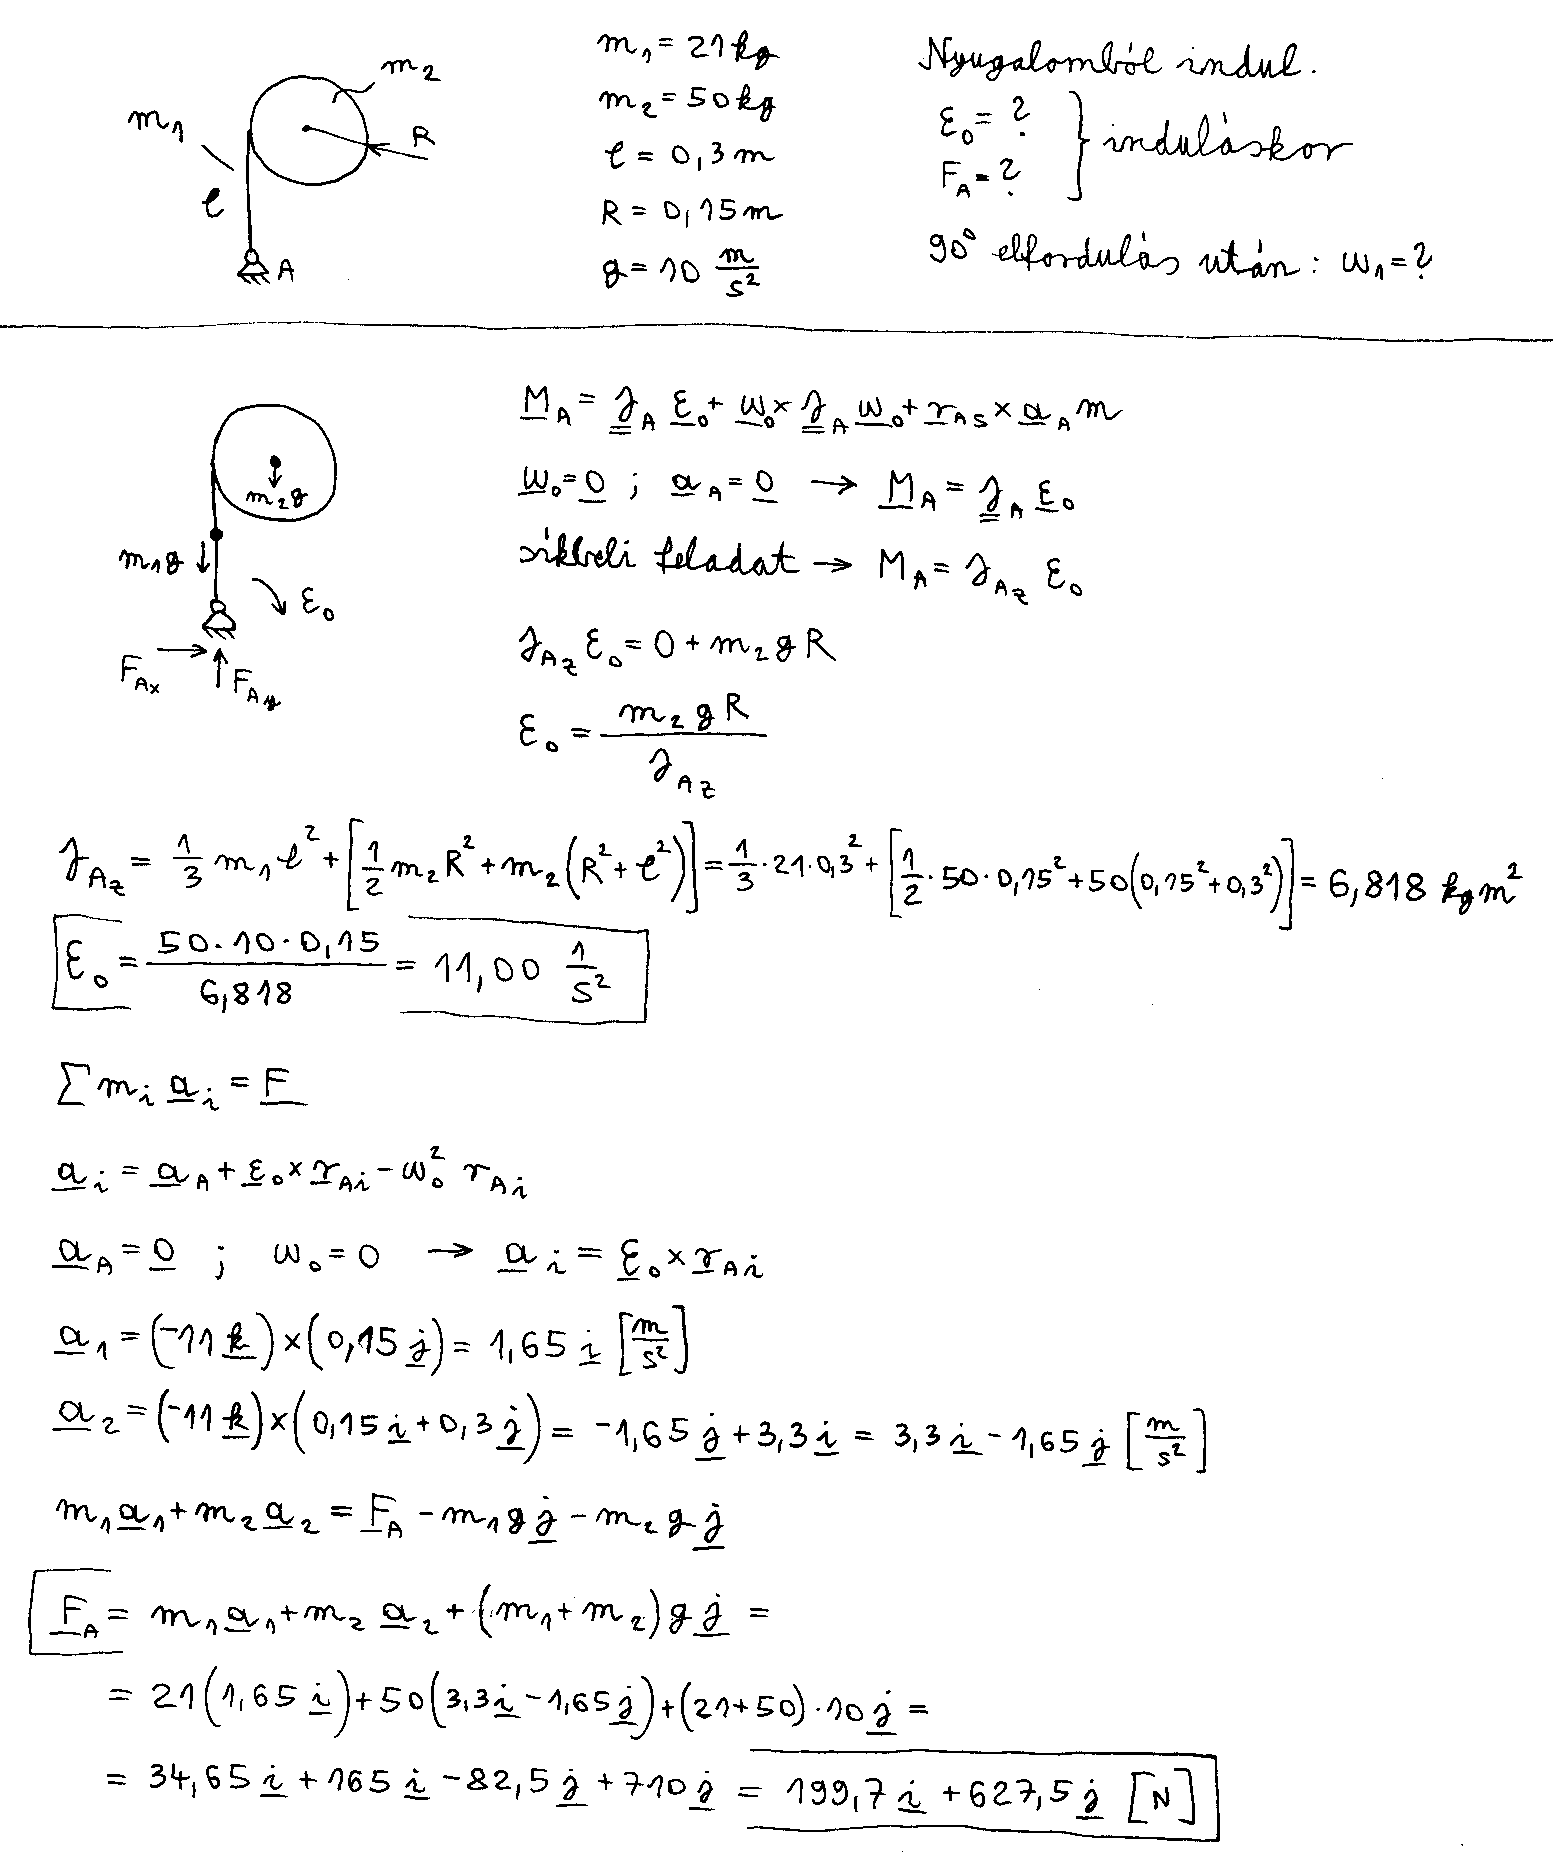 m₁ = 21 kg
m₂ = 50 kg
ℓ = 0,3 m
R = 0,15 m
g = 10 m/s²
Nyugalomból indul.
ε₀ = ?
F_A = ? } induláskor
90° elfordulás után: ω₁ = ?
m₁
m₂
R
ℓ
A
m₂g
m₁g
ε₀
F_Ax
F_Ay
M_A = J_A ε₀ + ω₀ × J_A ω₀ + r_AS × a_A m
ω₀ = 0 ; a_A = 0 → M_A = J_A ε₀
síkbeli feladat → M_A = J_Az ε₀
J_Az ε₀ = 0 + m₂ g R
ε₀ = m₂ g R / J_Az
J_Az = 1/3 m₁ ℓ² + [1/2 m₂ R² + m₂ (R² + ℓ²)] = 1/3 · 21 · 0,3² + [1/2 · 50 · 0,15² + 50 (0,15² + 0,3²)] = 6,818 kg m²
ε₀ = 50 · 10 · 0,15 / 6,818 = 11,00 1/s²
∑ m_i a_i = F
a_i = a_A + ε₀ × r_Ai - ω₀² r_Ai
a_A = 0 ; ω₀ = 0 → a_i = ε₀ × r_Ai
a₁ = (-11 k) × (0,15 j) = 1,65 i [m/s²]
a₂ = (-11 k) × (0,15 i + 0,3 j) = -1,65 j + 3,3 i = 3,3 i - 1,65 j [m/s²]
m₁ a₁ + m₂ a₂ = F_A - m₁ g j - m₂ g j
F_A = m₁ a₁ + m₂ a₂ + (m₁ + m₂) g j =
= 21 (1,65 i) + 50 (3,3 i - 1,65 j) + (21 + 50) · 10 j =
= 34,65 i + 165 i - 82,5 j + 710 j = 199,7 i + 627,5 j [N]